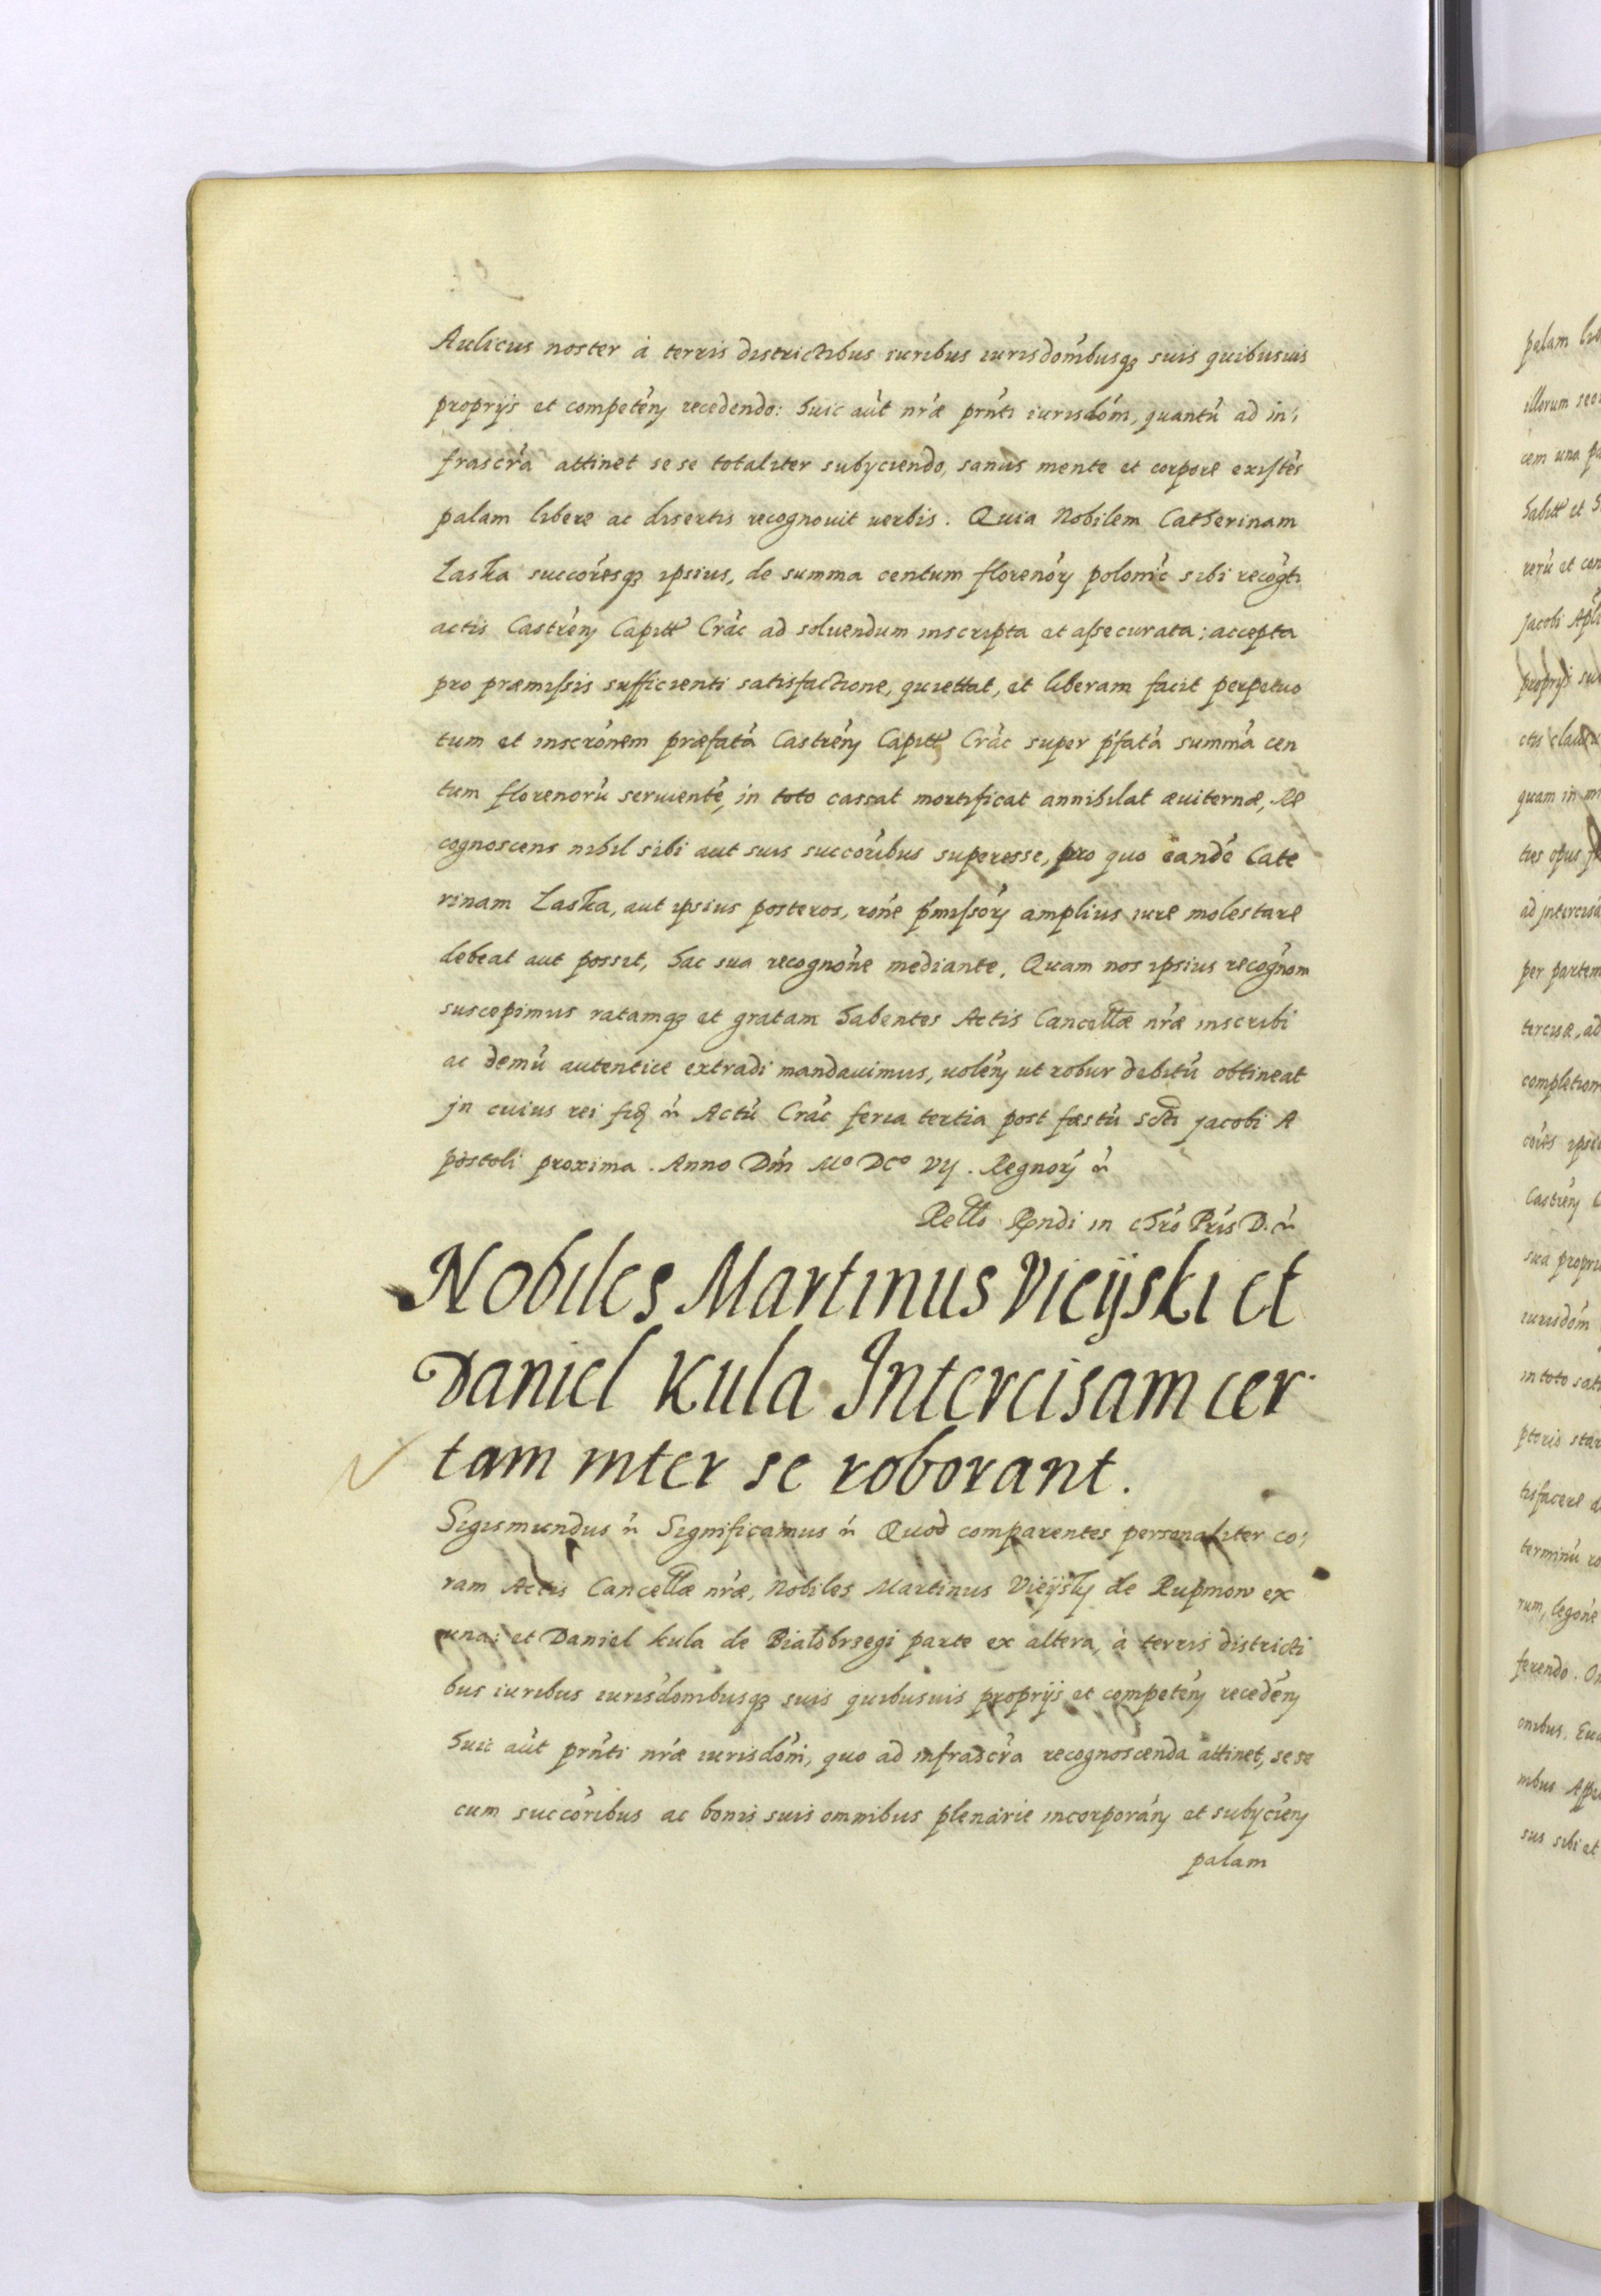 Aulicus noster à terris districtibus iuribus iurisdom̃busq₃ suis quibusuis
proprijs et competeñ recedendo: huic aũt nr̃æ prñti iurisdõm, quantũ ad in,
frascr̃a attinet se se totaliter subyciendo, sanus mente et corpore existẽs
palam libere ac disertis recognouit uerbis. Quia Nobilem Catherinam
Łaska succoresq₃ ipsius, de summa centum florenoꝝ polonic̃ sibi recog̃ti
actis Castreñ Capitł Crac̃ ad soluendum inscripta et assecurata; accepta
pro præmissis sufficienti satisfactione, quiettat, et liberam facit perpetuo
tum et inscrõnem præfatã Castreñ Capitł Crac̃ super p̃fatã summã cen
tum florenorũ seruientẽ, in toto cassat mortificat annihilat æuiternæ, Re
cognoscens nihil sibi aut suis succorĩbus superesse, pro quo eandẽ Cate
rinam Łaska, aut ipsius posteros, rõne p̃missoꝝ amplius iure molestare
debeat aut possit, hac sua recognõne mediante. Quam nos ipsius recognõm
suscepimus ratamq₃ et gratam habentes Actis Cancellæ nr̃æ inscribi
ac demũ autentice extradi mandauimus, uoleñ ut robur debitũ obtineat
jn cuius rei fid̃ ῀ Actũ Crac̃ feria tertia post festũ Scti jacobi A
postoli proxima. Anno Dñi Mº DCº VIJ. Regnoꝝ ῀
Rello Rñdi in Chrõ Pr̃is D. ῀
Nobiles Martinus Vieijski et
Daniel Kula Intercisam cer
tam inter se roborant.
Sigismundus ῀ Significamus ῀ Quod comparentes personaliter co,
ram Actis Cancellæ nr̃æ, Nobiles Martinus Vieijsky de Rupniow ex
una; et Daniel Kula de Białobrsegi parte ex altera, à terris districti
bus iuribus iurisdom̃busq₃ suis quibusuis proprijs et competeñ recedeñ
huic aũt prñti nr̃æ iurisdõni, quo ad infrascr̃a recognoscenda attinet, se se
cum succorĩbus ac bonis suis omnibus plenarie incorporañ et subycieñ
palam